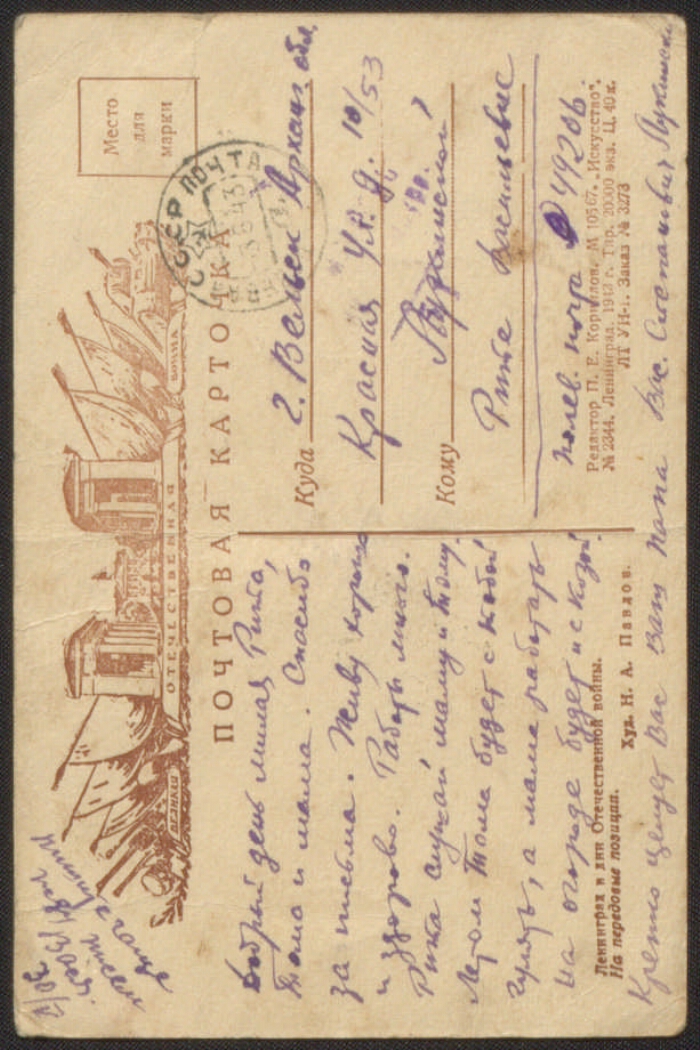 Место
для
марки
СССР ПОЧТА
ВЕЛИКАЯ
ОТЕЧЕСТВЕННАЯ
ВОЙНА
ПОЧТОВАЯ КАРТОЧКА
Куда г. Вельск Арханг обл.
Красная ул. д. 10/53
Кому
Рите Васильевне
полев. почта 49206
Редактор П. Е. Корнилов. М 10567. „Искусство“.
№ 2344. Ленинград. 1943 г. Тир. 20000 экз. Ц. 40 к.
ЛТ УИ-1. Заказ № 3273
Добрый день милая Рита,
Тома и мама. Спасибо
за письма. Живу хорошо
и здорово. Работы много.
Рита слушай маму и Тому.
Летом Тома будет с тобой
гулять, а мама работать
на огороде будет и с козой.
Ленинград в дни Отечественной войны.
На передовые позиции.
Худ. Н. А. Павлов.
Крепко целует Вас Ваш Папа Вас. Степанович